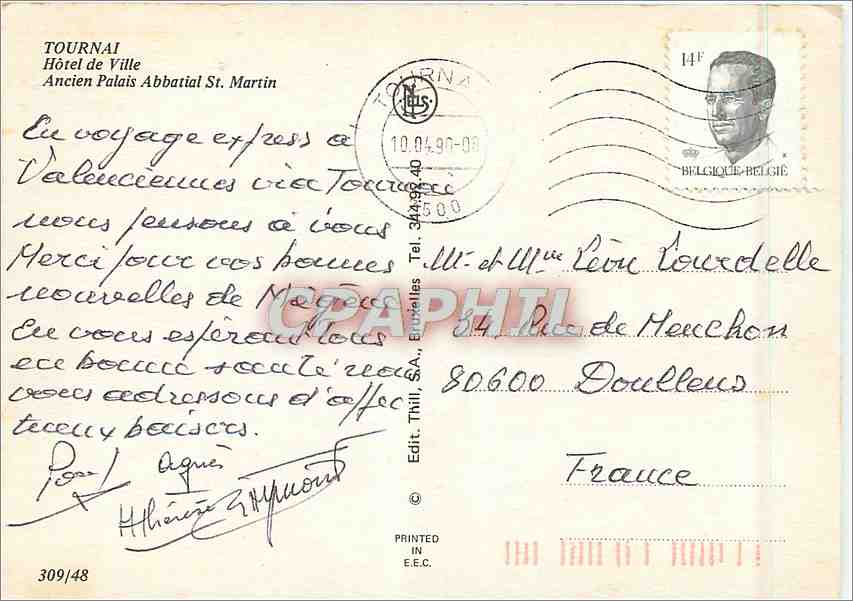 TOURNAI
Hôtel de Ville
Ancien Palais Abbatial St. Martin
TOURNA
NELS
10.04.90-0
500
14F
BELGIQUE·BELGIË
En voyage express à
Valenciennes via Tournai
nous pensons à vous
Merci pour vos bonnes
nouvelles de Mégève.
En vous espérant tous
en bonne santé nous
vous adressons d'affec
tueux baisers.
Paul Agnès
M Thérèse Raymond
309/48
© Edit. Thill, S.A., Bruxelles Tel. 344.92.40
PRINTED
IN
E.E.C.
CPAPHIL
Mr et Mme Léon Lourdelle
34, Rue de Menchon
80600 Doullens
France